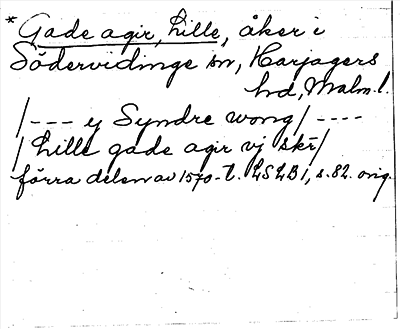 *Gade agir, Lille, åker i
Södervidinge sn, Harjagers
hd, Malm. l.
/--- y Syndre wong/ ----
/Lille gade agir vj skr/
förra delen av 1570-t. LSLB1, s. 82. orig.